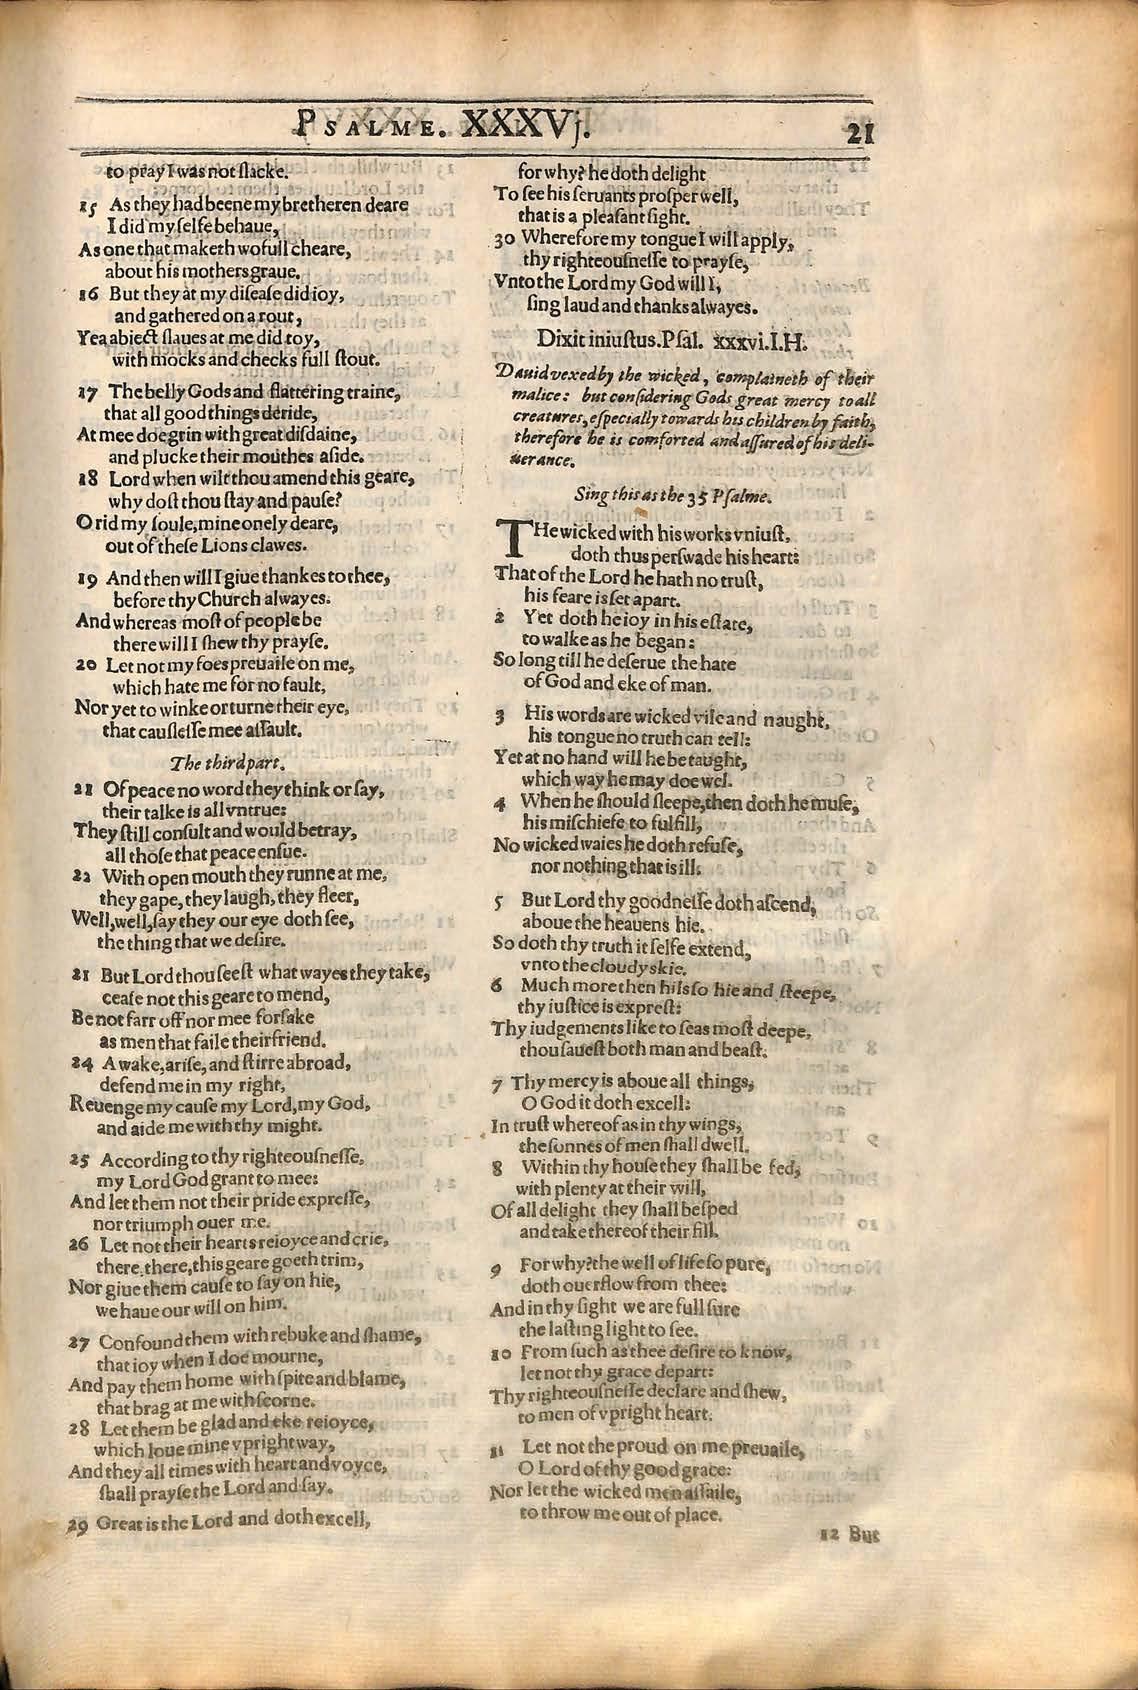 PSALME. XXXVj.
21
to pray I was not ſlacke.
15 As they had beene my bretheren deare
I did my ſelfe behaue,
As one that maketh wofull cheare,
about his mothers graue.
16 But they at my diſeaſe did ioy,
and gathered on a rout,
Yea abiect ſlaues at me did toy,
with mocks and checks full ſtout.
17 The belly Gods and flattering traine,
that all good things deride,
At mee doe grin with great diſdaine,
and plucke their mouthes aſide.
18 Lord when wilt thou amend this geare,
why doſt thou ſtay and pauſe?
O rid my ſoule, mine onely deare,
out of theſe Lions clawes.
19 And then will I giue thankes to thee,
before thy Church alwayes.
And whereas moſt of people be
there will I ſhew thy prayſe.
20 Let not my foes preuaile on me,
which hate me for no fault,
Nor yet to winke or turne their eye,
that cauſleſſe mee aſſault.
The third part.
21 Of peace no word they think or ſay,
their talke is all vntrue:
They ſtill conſult and would betray,
all thoſe that peace enſue.
22 With open mouth they runne at me,
they gape, they laugh, they fleer,
Well, well, ſay they our eye doth ſee,
the thing that we deſire.
21 But Lord thou ſeeſt what wayes they take,
ceaſe not this geare to mend,
Be not farr off nor mee forſake
as men that faile their friend.
24 Awake, ariſe, and ſtirre abroad,
defend me in my right,
Reuenge my cauſe my Lord, my God,
and aide me with thy might.
25 According to thy righteouſneſſe,
my Lord God grant to mee:
And let them not their pride expreſſe,
nor triumph ouer me.
26 Let not their hearts reioyce and crie,
there, there, this geare goeth trim,
Nor giue them cauſe to ſay on hie,
we haue our will on him.
27 Confound them with rebuke and ſhame,
that ioy when I doe mourne,
And pay them home with ſpite and blame,
that brag at me with ſcorne.
28 Let them be glad and eke reioyce,
which loue mine vpright way,
And they all times with heart and voyce,
ſhall prayſe the Lord and ſay.
29 Great is the Lord and doth excell,
for why? he doth delight
To ſee his ſeruants proſper well,
that is a pleaſant ſight.
30 Wherefore my tongue I will apply,
thy righteouſneſſe to prayſe,
Vnto the Lord my God will I,
ſing laud and thanks alwayes.
Dixit iniuſtus. Pſal. xxxvi. I.H.
Dauid vexed by the wicked, complaineth of their
malice: but conſidering Gods great mercy to all
creatures, eſpecially towards his children by faith,
therefore he is comforted and aſſured of his deli-
uerance.
Sing this as the 35 Pſalme.
THe wicked with his works vniuſt,
doth thus perſwade his heart:
That of the Lord he hath no truſt,
his feare is ſet apart.
2 Yet doth he ioy in his eſtate,
to walke as he began:
So long till he deſerue the hate
of God and eke of man.
3 His words are wicked vile and naught,
his tongue no truth can tell:
Yet at no hand will he be taught,
which way he may doe wel.
4 When he ſhould ſleepe, then doth he muſe,
his miſchiefe to fulfill,
No wicked waies he doth refuſe,
nor nothing that is ill.
5 But Lord thy goodneſſe doth aſcend,
aboue the heauens hie.
So doth thy truth it ſelfe extend,
vnto the cloudy skie.
6 Much more then hils ſo hie and ſteepe,
thy iuſtice is expreſt:
Thy iudgements like to ſeas moſt deepe,
thou ſaueſt both man and beaſt.
7 Thy mercy is aboue all things,
O God it doth excell:
In truſt whereof as in thy wings,
the ſonnes of men ſhall dwell.
8 Within thy houſe they ſhall be fed,
with plenty at their will,
Of all delight they ſhall be ſped
and take thereof their fill.
9 For why? the well of life ſo pure,
doth ouerflow from thee:
And in thy ſight we are full ſure
the laſting light to ſee.
10 From ſuch as thee deſire to know,
let not thy grace depart:
Thy righteouſneſſe declare and ſhew,
to men of vpright heart.
11 Let not the proud on me preuaile,
O Lord of thy good grace:
Nor let the wicked men aſſaile,
to throw me out of place.
12 But